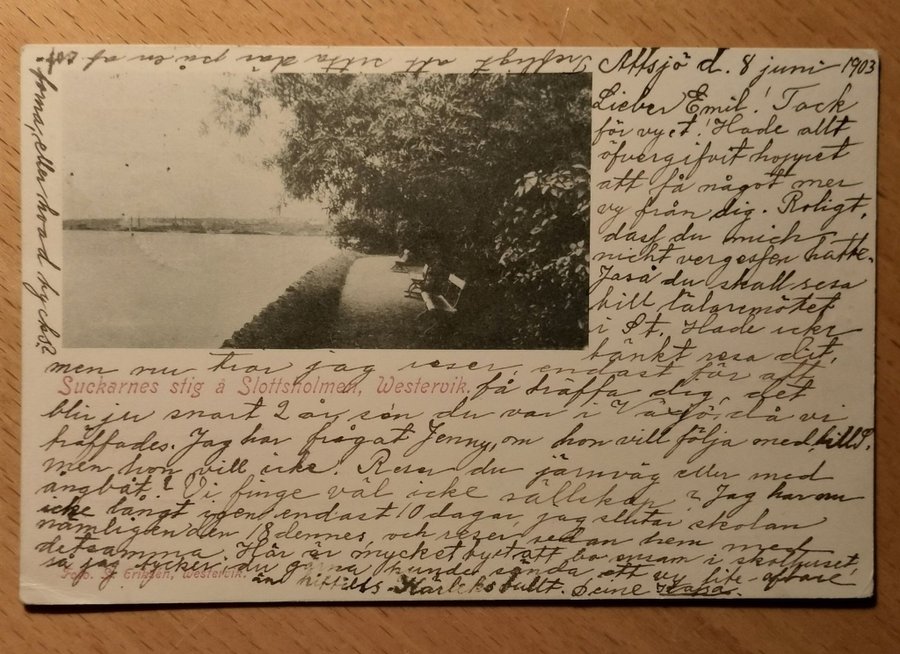 Attsjö d. 8 juni 1903
Lieber Emil! Tack
för vyet! Hade allt
öfvergifvit hoppet
att få något mer
vy från dig. Roligt,
dasf du mich
nicht vergessen hatte.
Jaså du skall resa
till läraremötet
i St. Hade icke
tänkt resa dit,
men nu tror jag reser, endast för att
Suckarnes stig å Slottsholmen, Westervik.
få träffa dig, det
blir ju snart 2 år sen du var i då vi
träffades. Jag har frågat Jenny, om hon vill följa med till
men hon vill icke. Reser du järnväg eller med
ångbåt? Vi finge väl icke sällskap? Jag har nu
icke långt igen, endast 10 dagar, jag slutar skolan
nämligen den 18 dennes, och reser sedan hem med
detsamma. Här är mycket att bo ensam i skolhuset,
så jag tycker, du gärna kunde sända ett vy lite oftare
Foto. Eriksen, Westervik.
än hittills. Kärleksfullt. Deine
Trefligt att sitta där på en af
sofforna, eller hvad tycks?